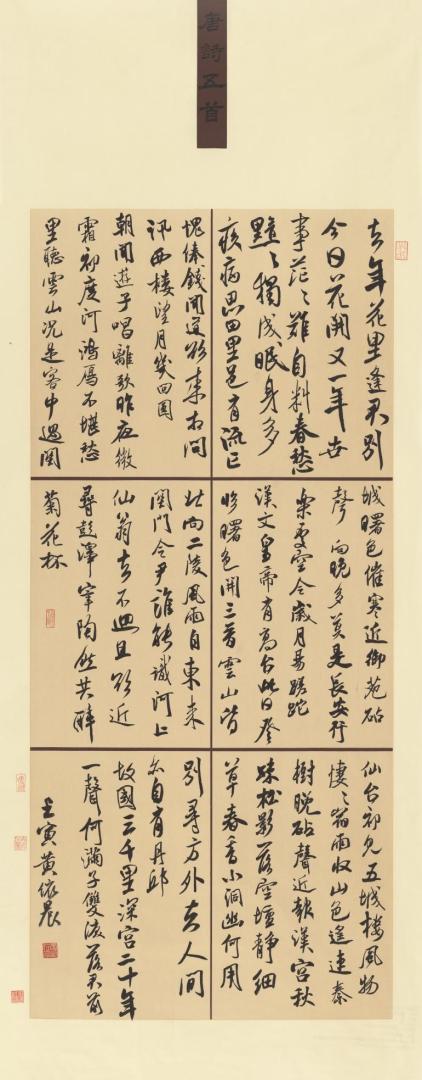 唐詩五首
去年花里逢君别
今日花開又一年世
事茫〻難自料春愁
黯〻獨成眠身多
疾病思田里邑有流亡
愧俸錢聞道欲來相問
訊西樓望月幾回圓
朝聞遊子唱離歌昨夜微
霜初度河鴻雁不堪愁
里聽雲山況是客中過關
城曙色催寒近御苑砧
聲向晚多莫是長安行
樂處空令歲月易蹉跎
漢文皇帝有高台此日登
臨曙色開三晉雲山皆
北向二陵風雨自東來
關門令尹誰能識河上
仙翁去不迴且欲近
尋彭澤宰陶然共醉
菊花杯
仙台初見五城樓風物
淒〻宿雨收山色遙連秦
樹晚砧聲近報漢宮秋
疎松影落空壇靜細
草春香小洞幽何用
别尋方外去人間
亦自有丹邱
故國三千里深宮二十年
一聲何滿子雙淚落君前
壬寅黃